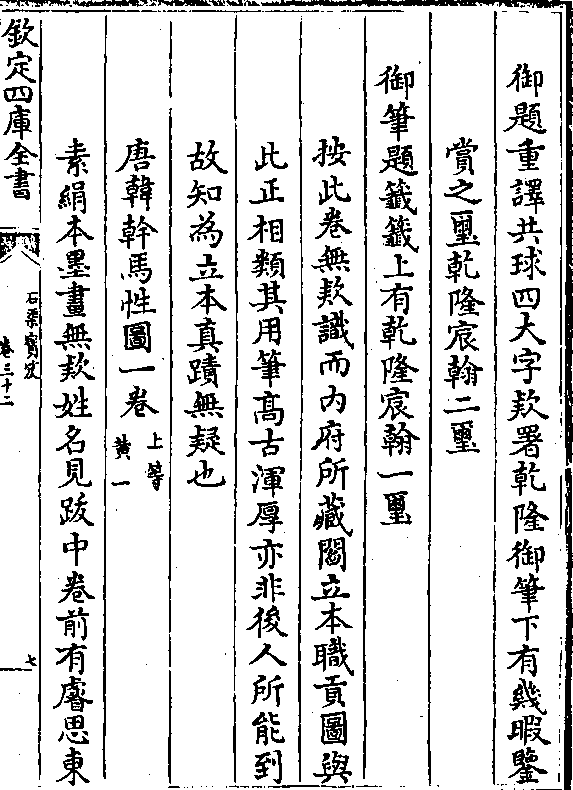 御題重譯共球四大字款署乾隆御筆下有幾暇鑒
賞之璽乾隆宸翰二璽
御筆題籤籤上有乾隆宸翰一璽
按此卷無款識而內府所藏閻立本職貢圖與
此正相類其用筆髙古渾厚亦非後人所能到
故知為立本真蹟無疑也
唐韓幹馬性圖一卷 上等 黄一
素絹本墨畫無款姓名見跋中卷前有睿思東
欽定四庫全書
石渠寶笈
卷三十二
七